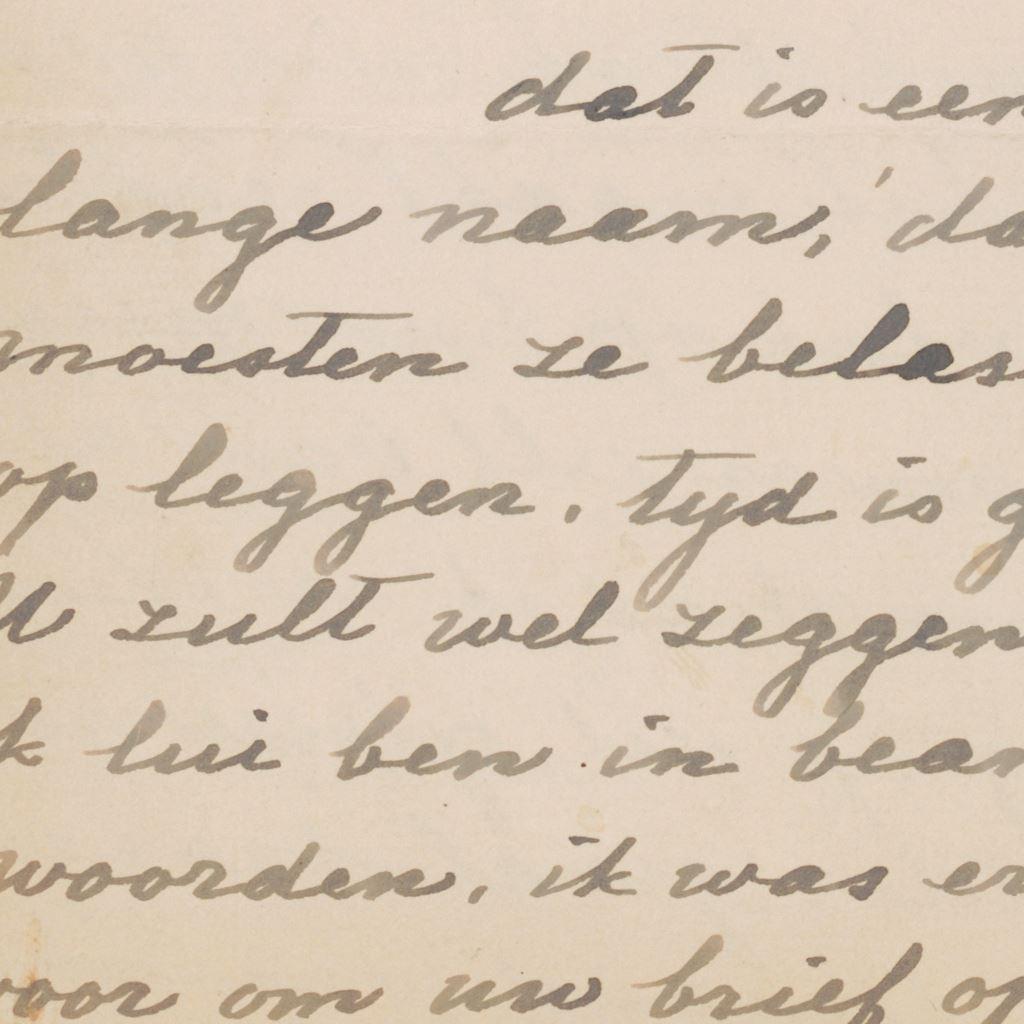 dat is een
lange naam, da
moesten ze belas
op leggen. tyd is g
U zult wel zeggen
k lui ben in bean
woorden. ik was er
voor om uw brief op